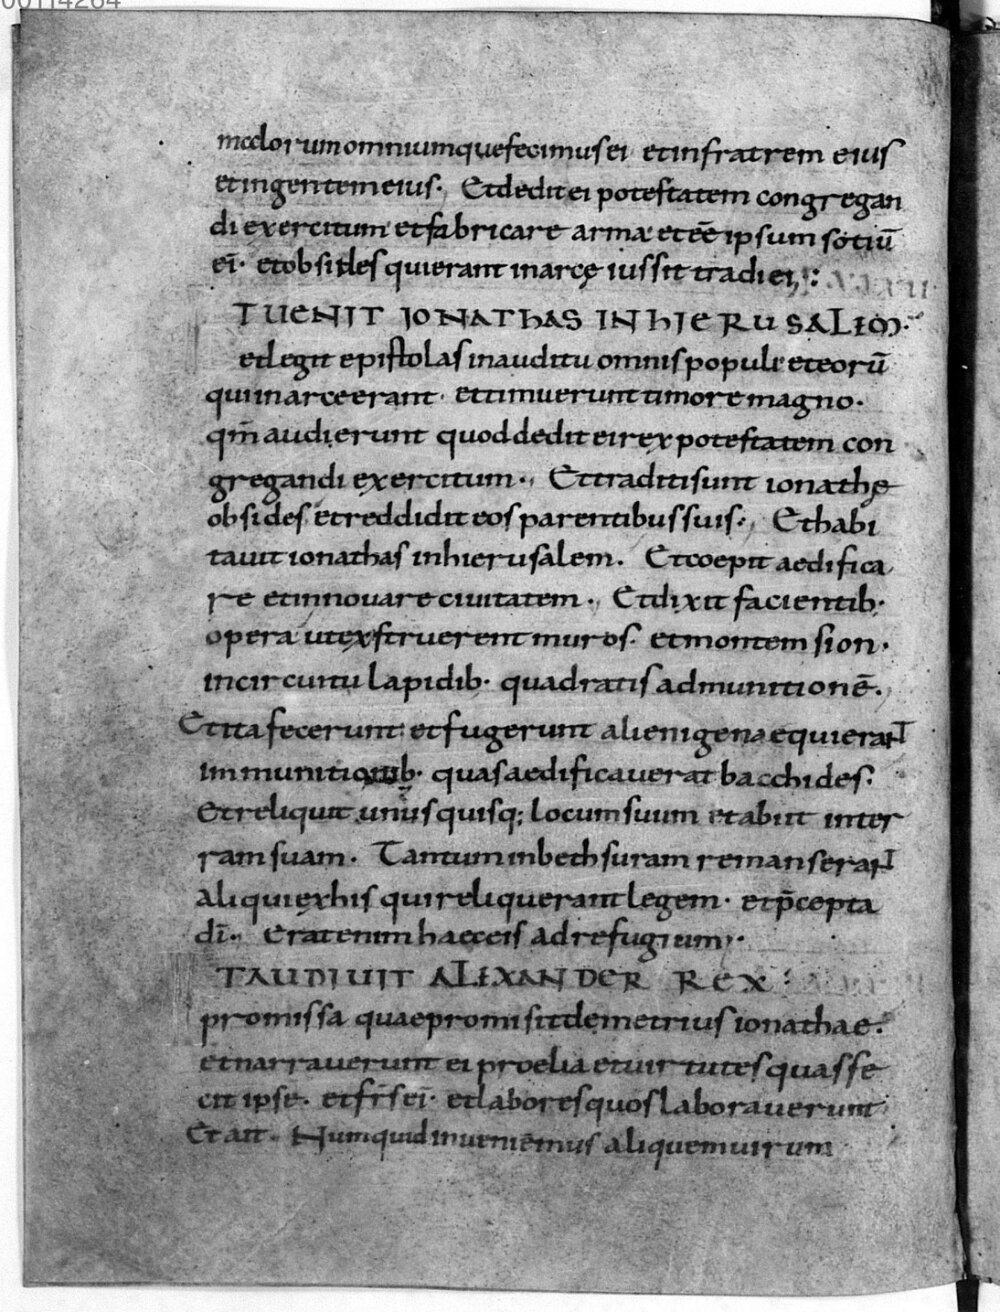 00114264
malorum omnium que fecimus ei et in fratrem eius
et in gentem eius. Et dedit ei potestatem congregan
di exercitum et fabricare arma et eē ipsum sotiū
ei͞. et obsides qui erant in arcę iussit tradi ei,:
T UENIT IONATHAS IN HIERUSALEM.
et legit epistolas in auditu omnis populi et eorū
qui in arce erant. et timuerunt timore magno.
qm̄ audierunt quod dedit ei rex potestatem con
gregandi exercitum. Et traditi sunt ionathę
obsides et reddidit eos parentibus suis. Et habi
tauit ionathas in hierusalem. Et coepit aedifica
re et innouare ciuitatem. Et dixit facientib·
opera ut exstruerent muros. et montem sion.
in circuitu lapidib· quadratis ad munitionē.
Et ita fecerunt et fugerunt alienigenae qui erant
in munitionib· quas aedificauerat bacchides.
Et reliquit unusquisq; locum suum et abiit in ter
ram suam. Tantum in bethsuram remanserant
aliqui ex his qui reliquerant legem. et p̄cepta
dī. Erat enim haec eis ad refugium.
T AUDIUIT ALEXANDER REX
promissa quae promisit demetrius ionathae.
et narrauerunt ei proelia et uirtutes quas fe
cit ipse. et fr̄s ei͞. et labores quos laborauerunt
Et ait. Numquid inueniemus aliquem uirum